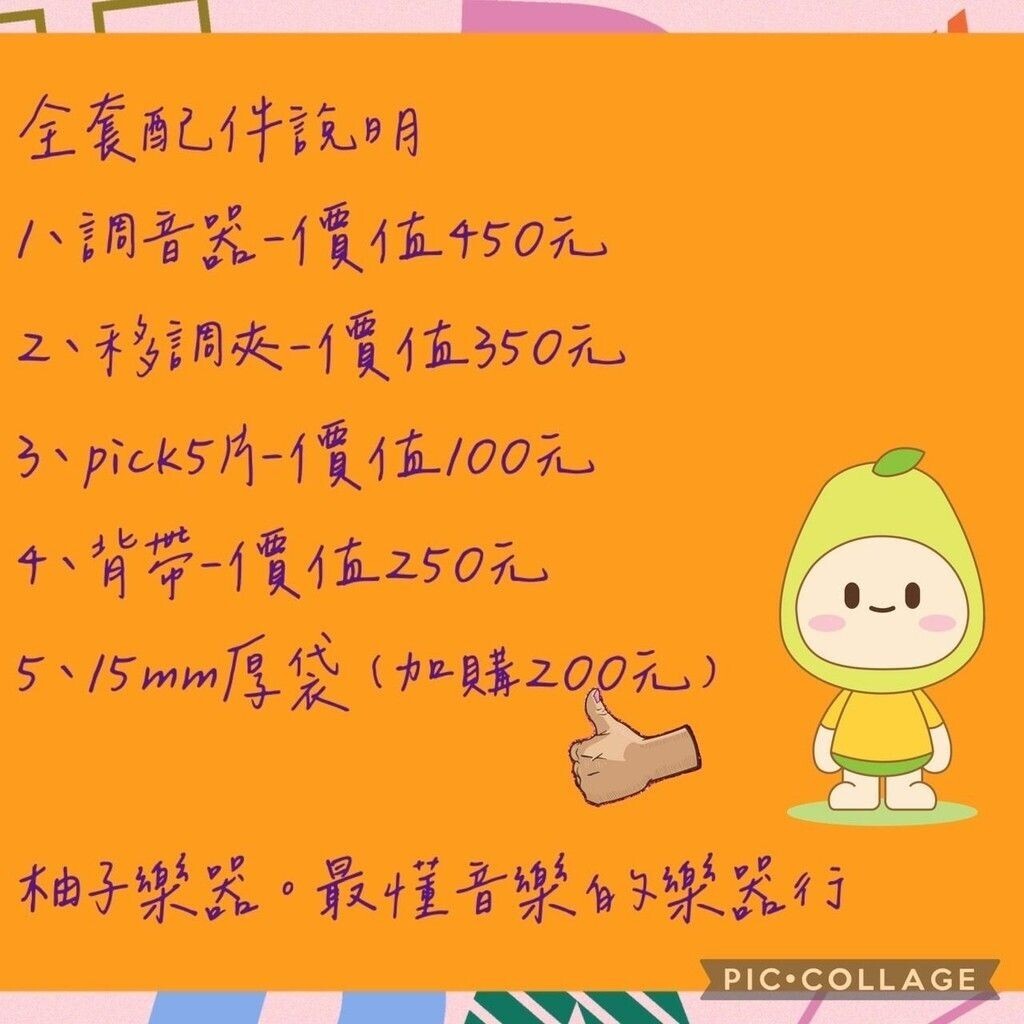 全套配件說明
1、調音器-價值450元
2、移調夾-價值350元
3、pick5片-價值100元
4、背帶-價值250元
5、15mm厚袋(加購200元)
柚子樂器。最懂音樂的樂器行
PIC•COLLAGE